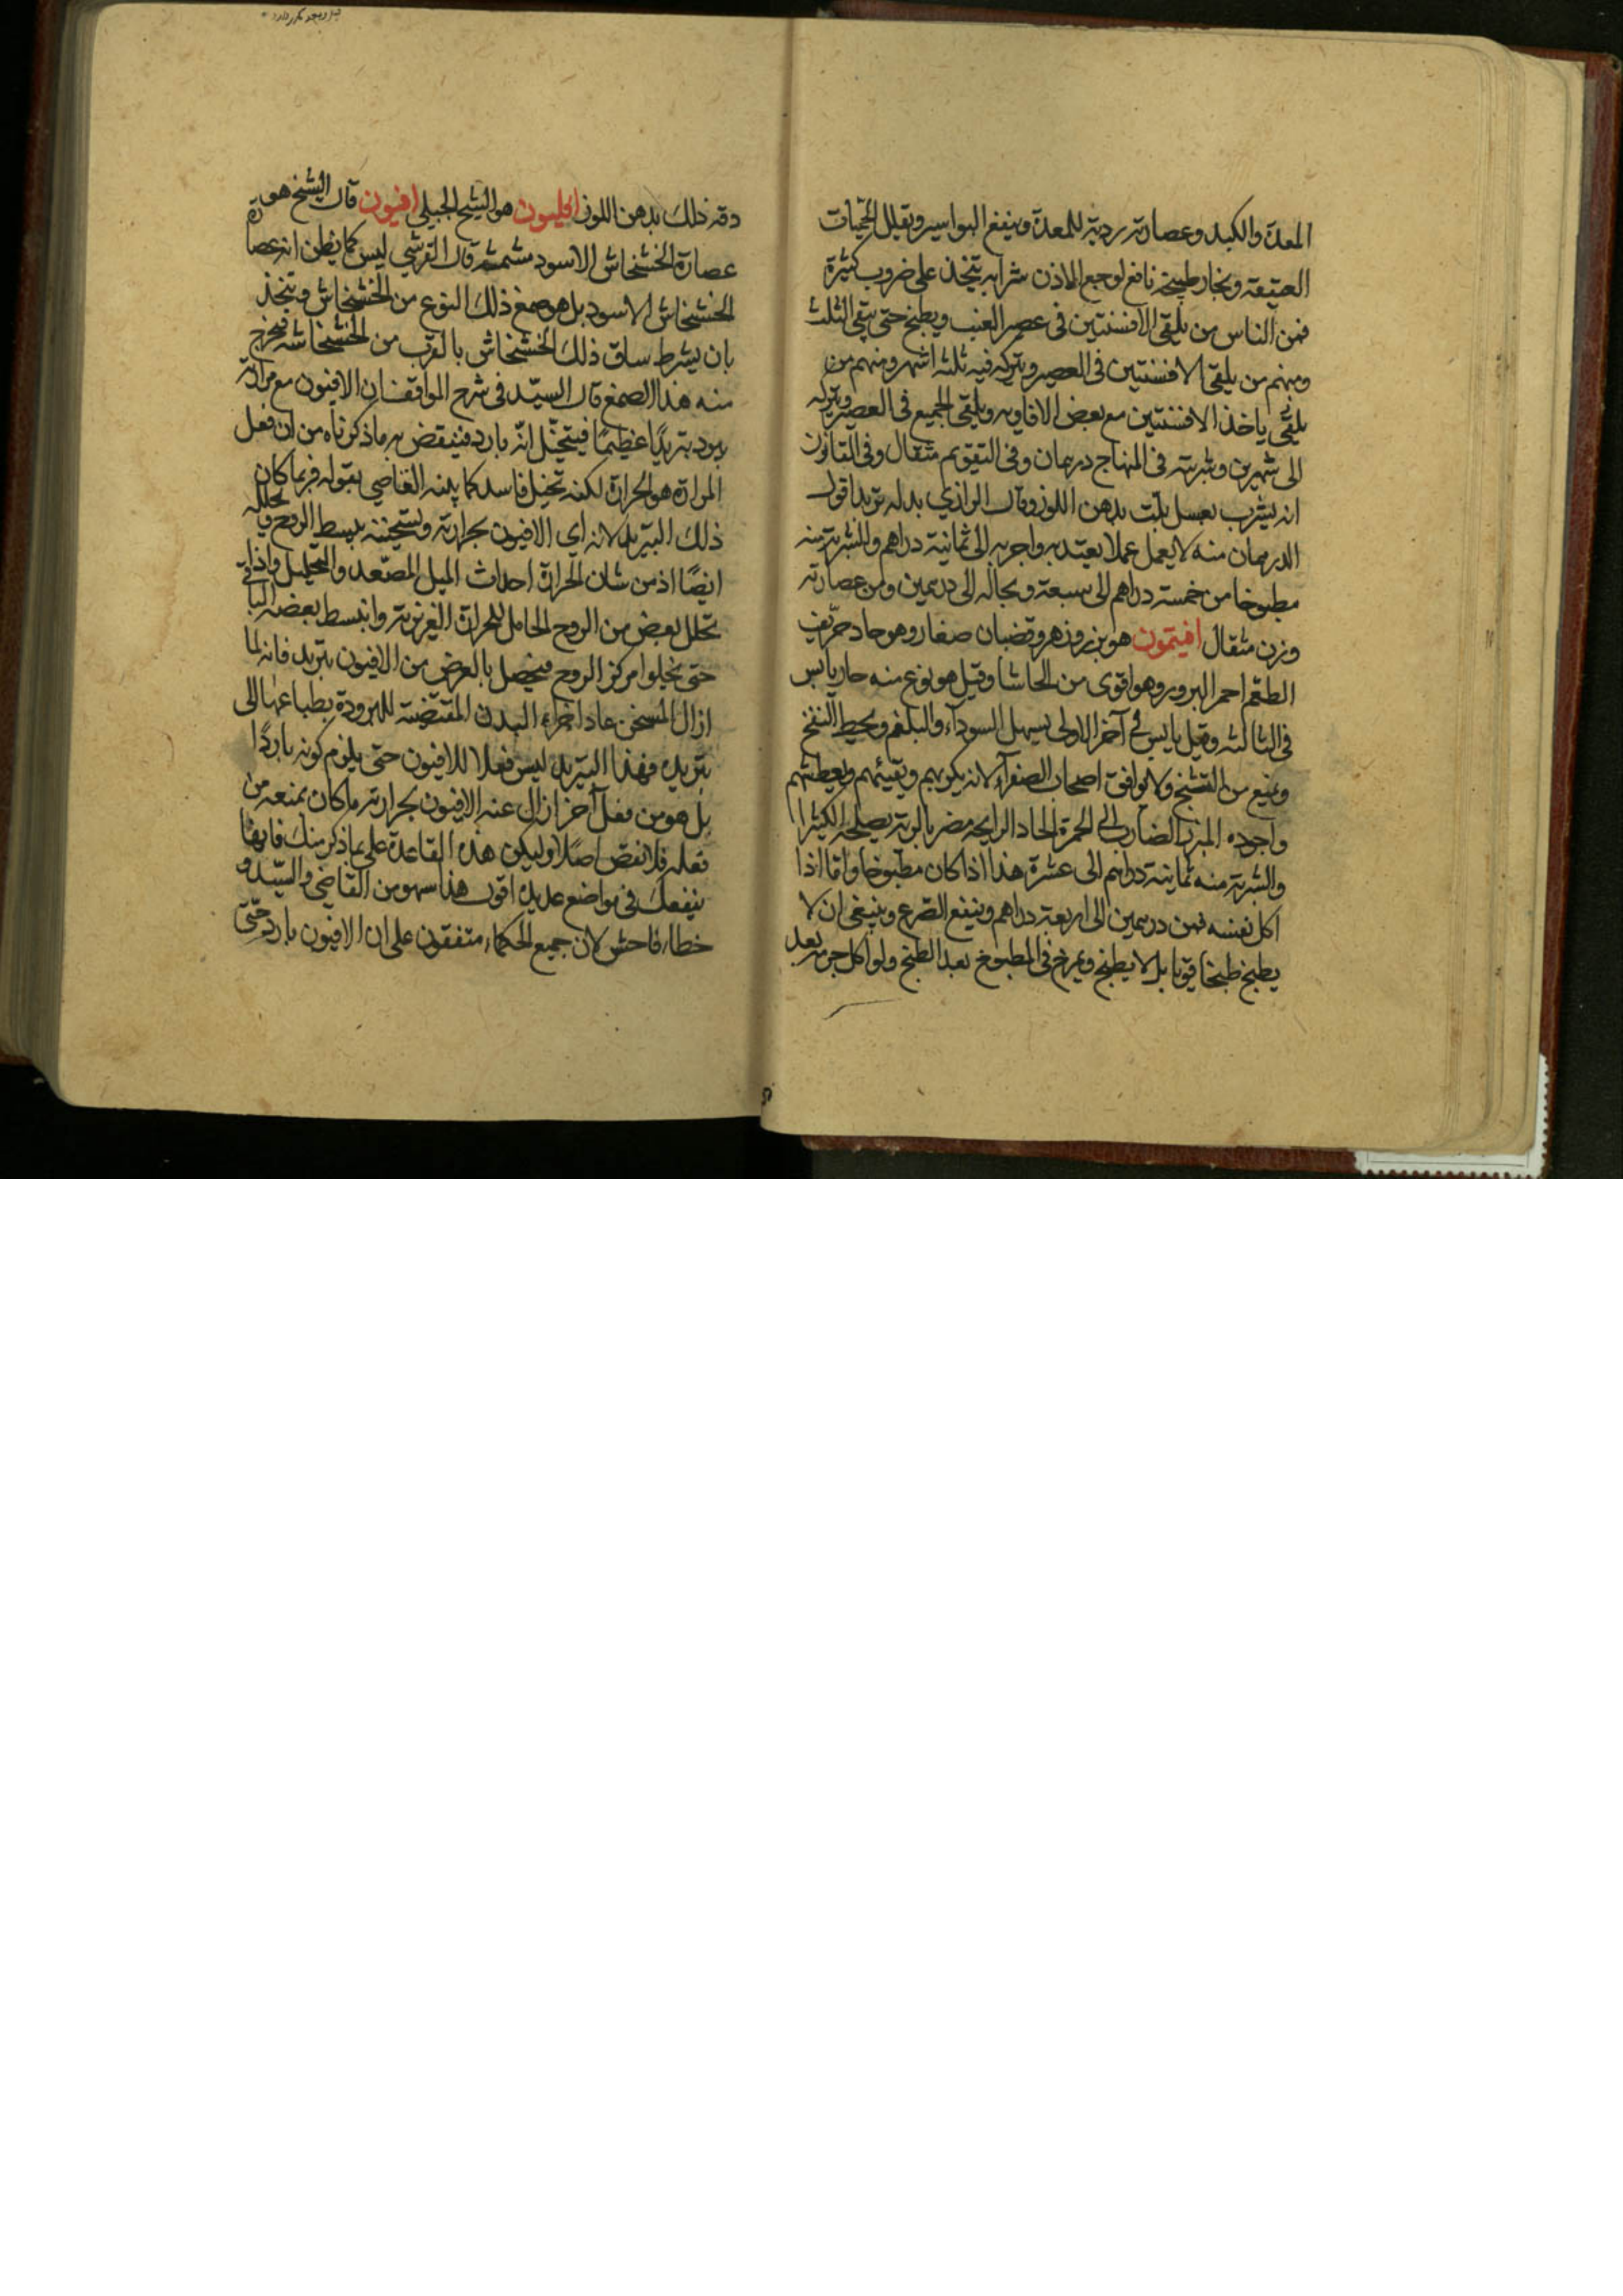 المعدة والكبد وعصارته ردية للمعدة وينفع البواسير ويقلل الحميات
العتيقة وبخار طبيخه نافع لوجع الاذن شرابه يتخذ على ضروب كثيرة
فمن الناس من يلقى الافسنتين فى عصير العنب ويطبخ حتى يبقى الثلث
ومنهم من يلقى الافسنتين فى العصير ويتركه فيه ثلثه اشهر ومنهم من
يلقى ياخذ الافسنتين مع بعض الافاويه ويلقى الجميع فى العصير ويتركه
الى شهرين وشربته فى المنهاج درهمان وفى التقويم مثقال وفى القانون
انه يشرب بعسل يلت بدهن اللوز وقال الرازي بدله تربد اقول
الدرهمان منه لا يعمل عملا يعتد به واجربه الى ثمانية دراهم والشربة منه
مطبوخا من خمسته دراهم الى سبعة وبحاله الى درهمين ومن عصارته
وزن مثقال افيتمون هو بزر وزهر وقضبان صغار وهو حاد حرّيف
الطعم احمر البرور وهو اقوى من الحاشا وقيل هو نوع منه حار يابس
فى الثالثه وقيل يابس فى آخر الاولى يسهل السوداء والبلغم ويحيط النفخ
وينفع من التشنج ولا يوافق اصحاب الصفرآء لانه يكربهم ويقيئهم ويعطشهم
واجوده المبزر الضارب الى الحمرة الحاد الرايحه مضر بالرية يصلحه الكثيرا
والشربة منه ثمانية دراهم الى عشرة هذا اذا كان مطبوخا واما اذا
اكل نفسه فمن درهمين الى اربعة دراهم وينفع الصّرع وينبغى ان لا
يطبخ طبخا قويا بل لا يطبخ ويمرخ فى المطبوخ بعد الطبخ ولو اكل جرمه بعد
دقه ذلك بدهن اللوز افليون هو الشيح الجبلي افيون قال الشيخ هو
عصارة الخشخاش الاسود مشمشه قال القرشي ليس كما يظن انه عصارة
الخشخاش الاسود بل هو صمغ ذلك النوع من الخشخاش ويتخذ
بان يشرط ساق ذلك الخشخاش بالقرب من الخشخاشه فيخرج
منه هذا الصمغ قال السيّد فى شرح المواقف ان الافيون مع مرارته
يبرد تبريدًا عظيمًا فيتخيّل انّه بارد فينقض به ما ذكرناه من ان فعل
المرارة هو الحرارة لكنه تخيل فاسد كما بينه القاضي بقوله فربما كان
ذلك التبريد لانه اي الافيون بحرارته وتسخينه يبسط الروح ويحلله
ايضًا اذ من شان الحرارة احداث الميل المصعّد والتحليل واذا
تحلل بعض من الروح الحامل للحرارة الغريزية وانبسط بعضه الباقى
حتى يخلوا مركز الروح فيحصل بالعرض من الافيون تبريد فانه لما
ازال المسخن عاد اجزاء البدن المقتضية للبرودة بطباعها الى
تبريده فهذا التبريد ليس فعلا للافيون حتى يلزم كونه باردًا
بل هو من فعل آخر ازال عنه الافيون بحرارته ما كان يمنعه من
فعله فلا نقض اصلًا وليكن هذه القاعدة على ما ذكر منك فانها
ينفعك فى مواضع عديدة اقول هذا سهو من القاضى والسيّد و
خطاء فاحش لان جميع الحكماء متفقون على ان الافيون بارد حتّى